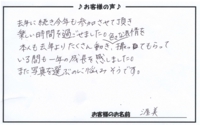 ♪お客様の声♪
去年に続き今年も参加させて頂き
楽しい時間を過ごせました。良い表情を
本人も去年よりたくさん動き、撮ってもらって
いる間も一年の成長を感じました
また写真を選ぶのに悩みそうです。
お客様のお名前